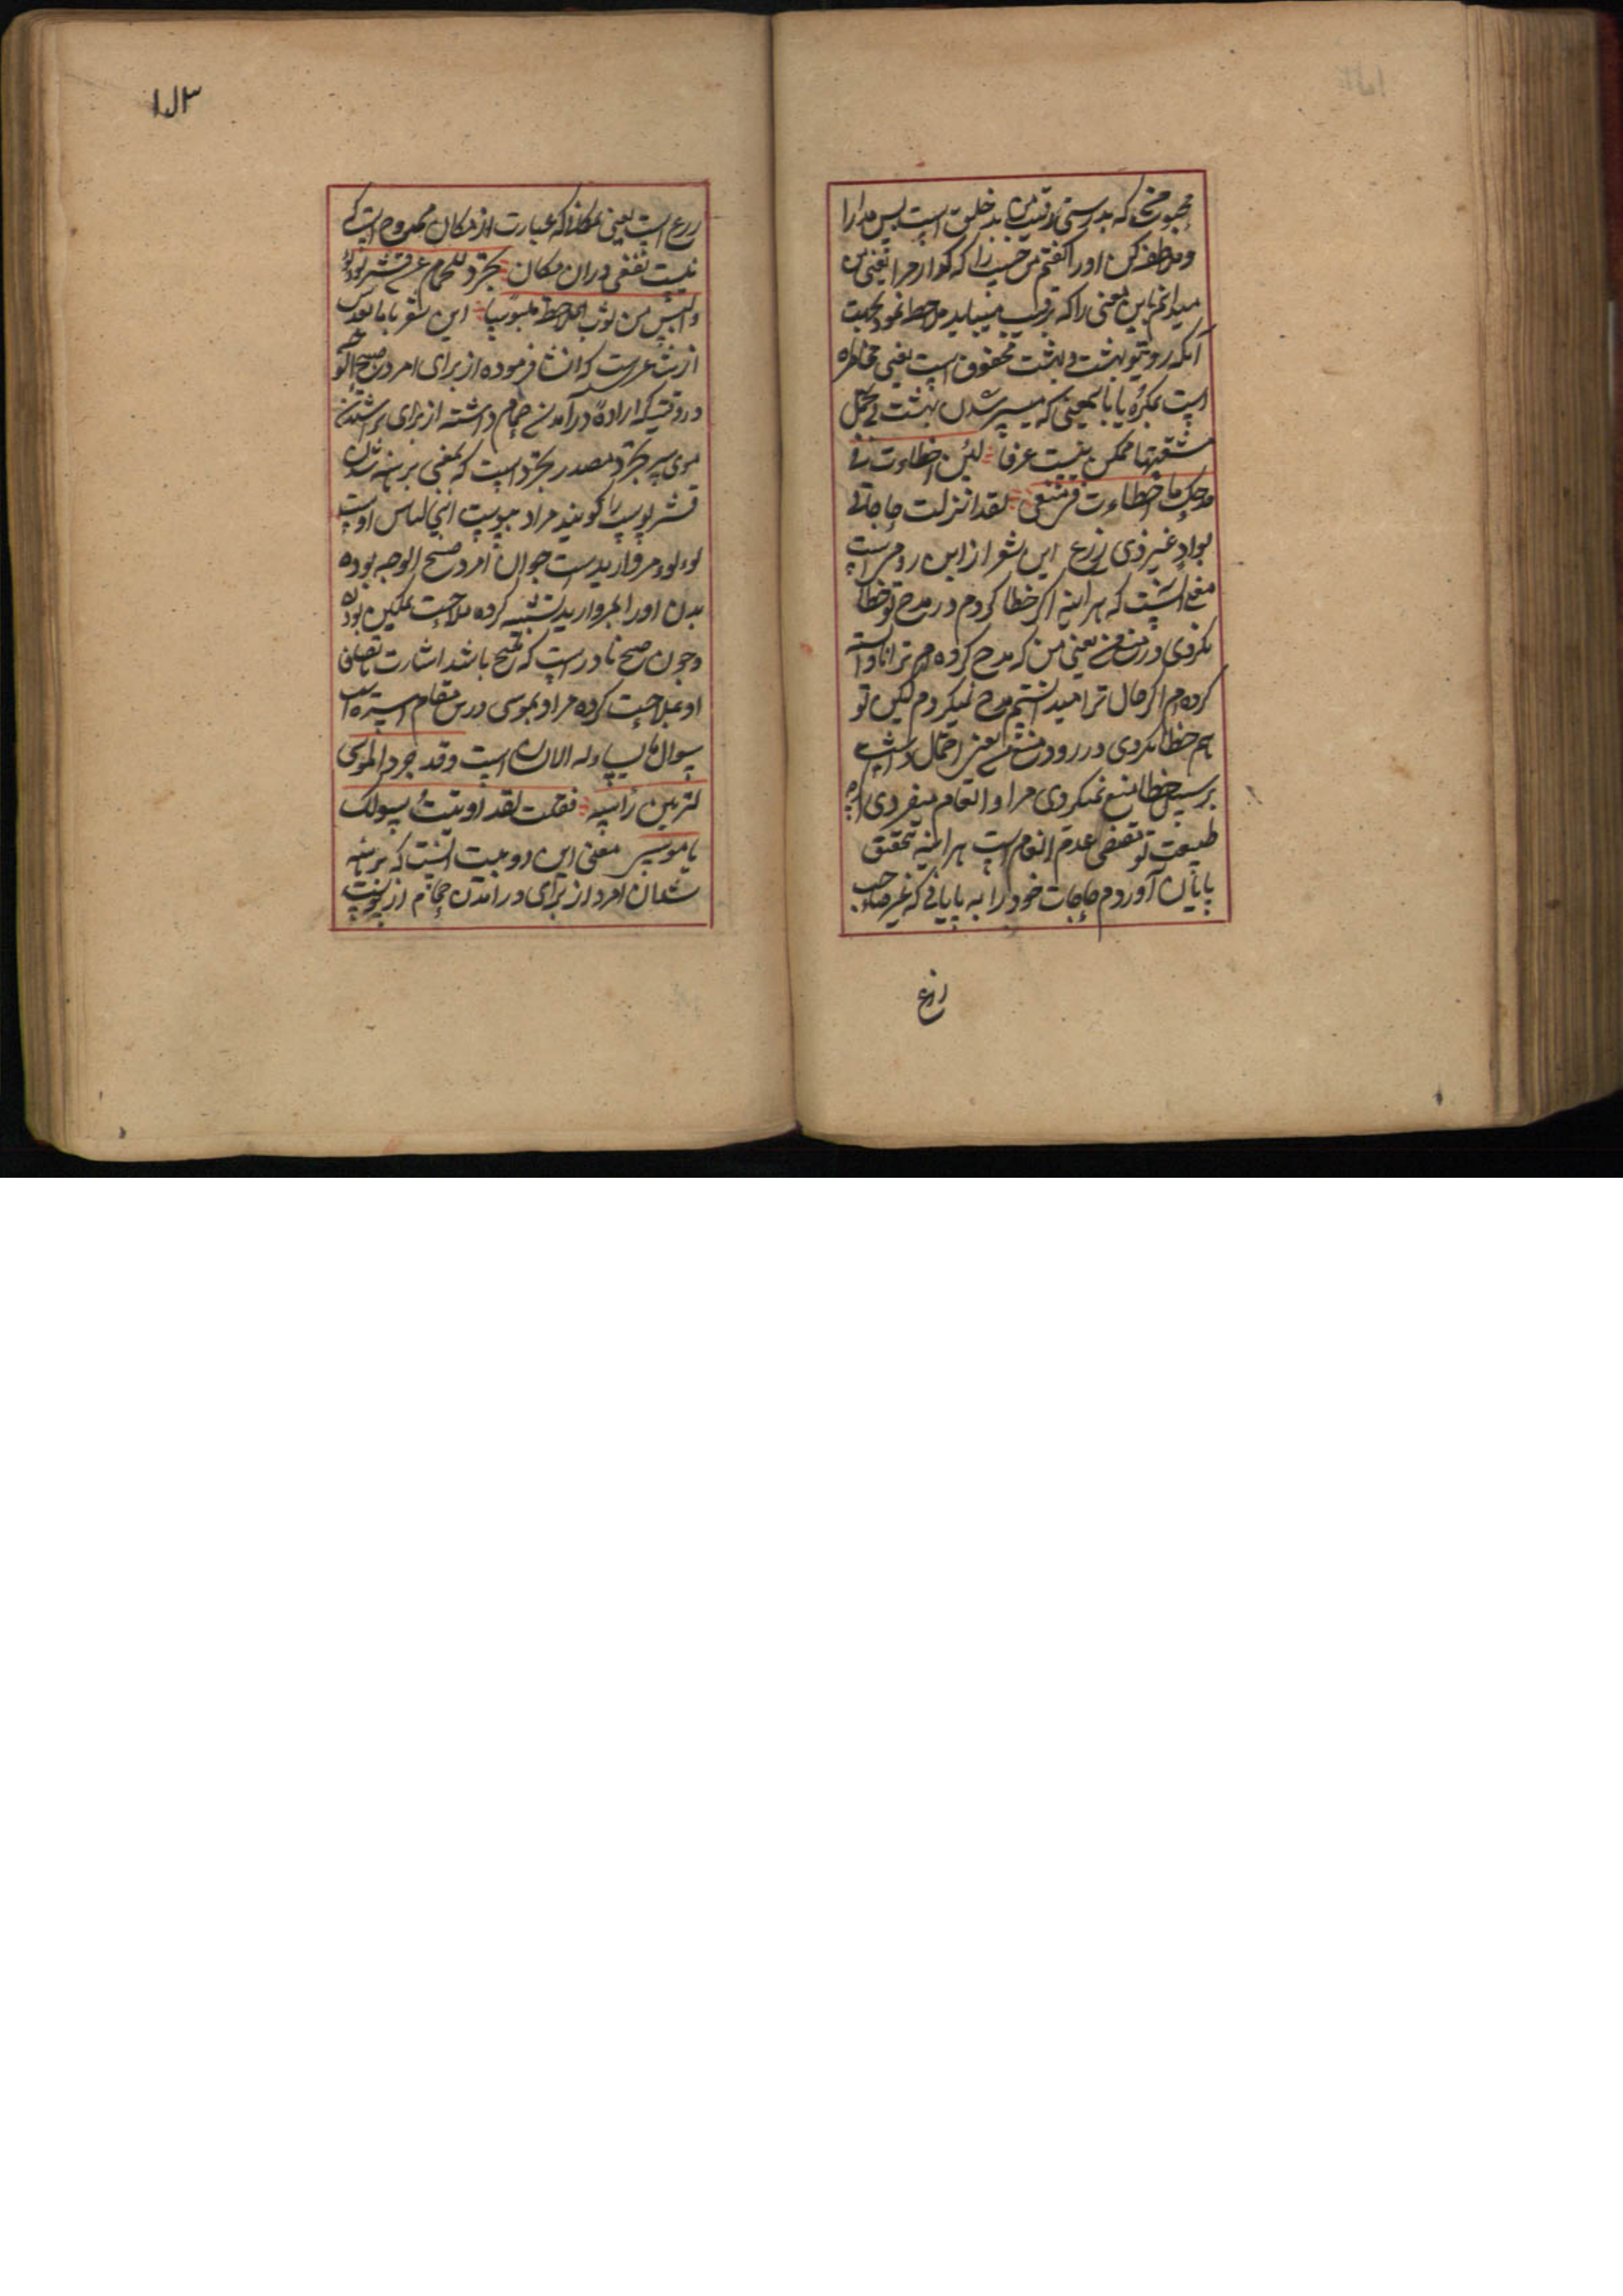 محبوب من که بدرستی رقیب من بد خلق است پس مدارا
و ملاطفه کن او را گفتم من حبیب را که گذار مرا یعنی من
میدانم این معنی را که رقیب میباید ملاحظه نمود بجهت
آنکه روی تو بهشت و بهشت محفوف است یعنی محاط
است بمکاره یا باین معنی که میسر شدن بهشت بی تحمل
مشقتها ممکن نیست عرفا لئن اخطأت فی
مدحک ما اخطأت فی منعی لقد انزلت حاجاتی
بواد غیر ذی زرع این شعر از ابن رومی است
معنی آنست که هر آینه اگر خطا کردم در مدح تو خطا
نکردی در منع من یعنی من که مدح کرده‌ام ترا نادانسته
کرده‌ام اگر حال ترا میدانستم مدح نمیکردم لیکن تو
هم خطا نکردی در منع من یعنی احتمال داشت
بر سبیل خطا منع نمیکردی مرا و انعام میفرمودی
طبیعت تو مقتضی عدم انعام است هر آینه بتحقیق
پایان آوردم حاجات خود را به بیابانی که غیر صاحب
زرع
۱۸۳
زرع است یعنی بمکانی که عبارت از مکان ممدوح است که
نیست نفعی در آن مکان تجرد للحمام عن قشر لؤلؤ
و البس من ثوب الملاحة ملبوسا این شعر با ما بعدش
از شاعریست که انشا فرموده از برای امرد صبیح الوجه
در وقتیکه اراده درآمدن حمام داشته از برای تراشیدن
موی سر تجرد مصدر تجرد است که بمعنی برهنه شدن
قشر پوست را گویند مراد بپوست اینجا لباس اوست
لؤلؤ مروارید است جوان امرد صبیح الوجه بوده
بدن او را بمروارید تشبیه کرده ملاحت نمکین بودن
و چون صبیح نادر است که ملیح باشد اشارت باتصاف
او بملاحت کرده مراد بموسی درین مقام استره است
سؤال مالیدن است و قد جرد الموسی
لتزیین رأسه فقلت لقد اوتیت سؤلک
یا موسی معنی این دو بیت آنست که برهنه
شد آن امرد از برای درآمدن حمام از پوست